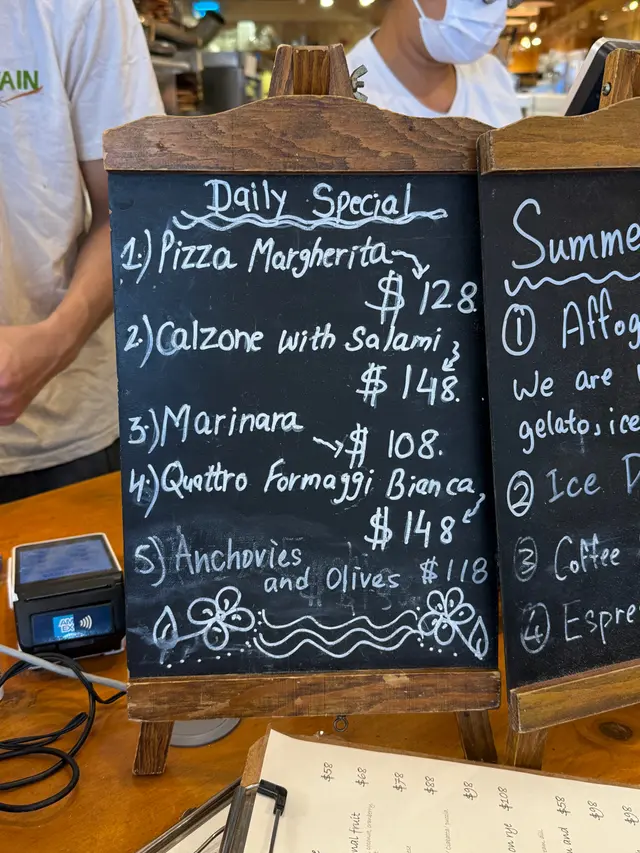 AIN
Daily Special
1.) Pizza Margherita
$128.
2.) Calzone with Salami
$148.
3.) Marinara
$108.
4.) Quattro Formaggi Bianca
$148
5) Anchovies
and Olives $118
Summe
① Affog
We are
gelato, ice
② Ice D
③ Coffee
④ Espre
$58
$68
$78
$88
$98
$108
$58
$98
$98
nal fruit
on rye
and